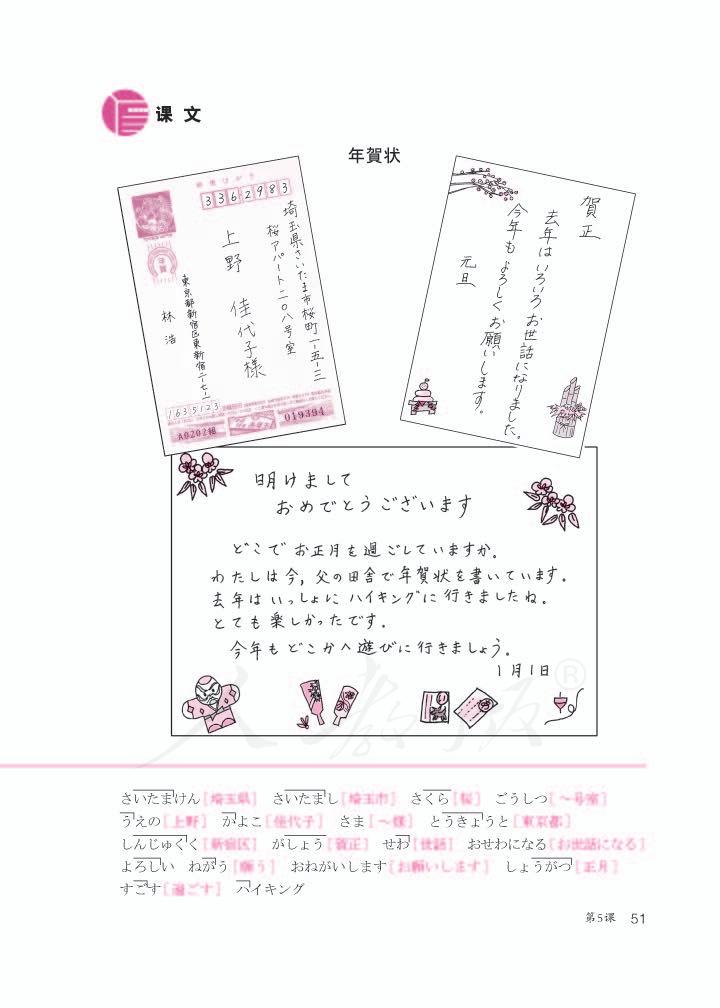 课文
年賀状
郵便はがき
3362983
埼玉県さいたま市桜町一-五-三
桜アパート二〇八号室
上野 佳代子様
年賀
東京都新宿区東新宿二-七-一
林 浩
1635123
A0202組
019394
賀正
去年はいろいろお世話になりました。
今年もよろしくお願いします。
元旦
明けまして
おめでとうございます
どこでお正月を過ごしていますか。
わたしは今,父の田舎で年賀状を書いています。
去年はいっしょにハイキングに行きましたね。
とても楽しかったです。
今年もどこかへ遊びに行きましょう。
1月1日
人教版®
さいたまけん[埼玉県] さいたまし[埼玉市] さくら[桜] ごうしつ[~号室]
うえの[上野] かよこ[佳代子] さま[~様] とうきょうと[東京都]
しんじゅくく[新宿区] がしょう[賀正] せわ[世話] おせわになる[お世話になる]
よろしい ねがう[願う] おねがいします[お願いします] しょうがつ[正月]
すごす[過ごす] ハイキング
第5课 51